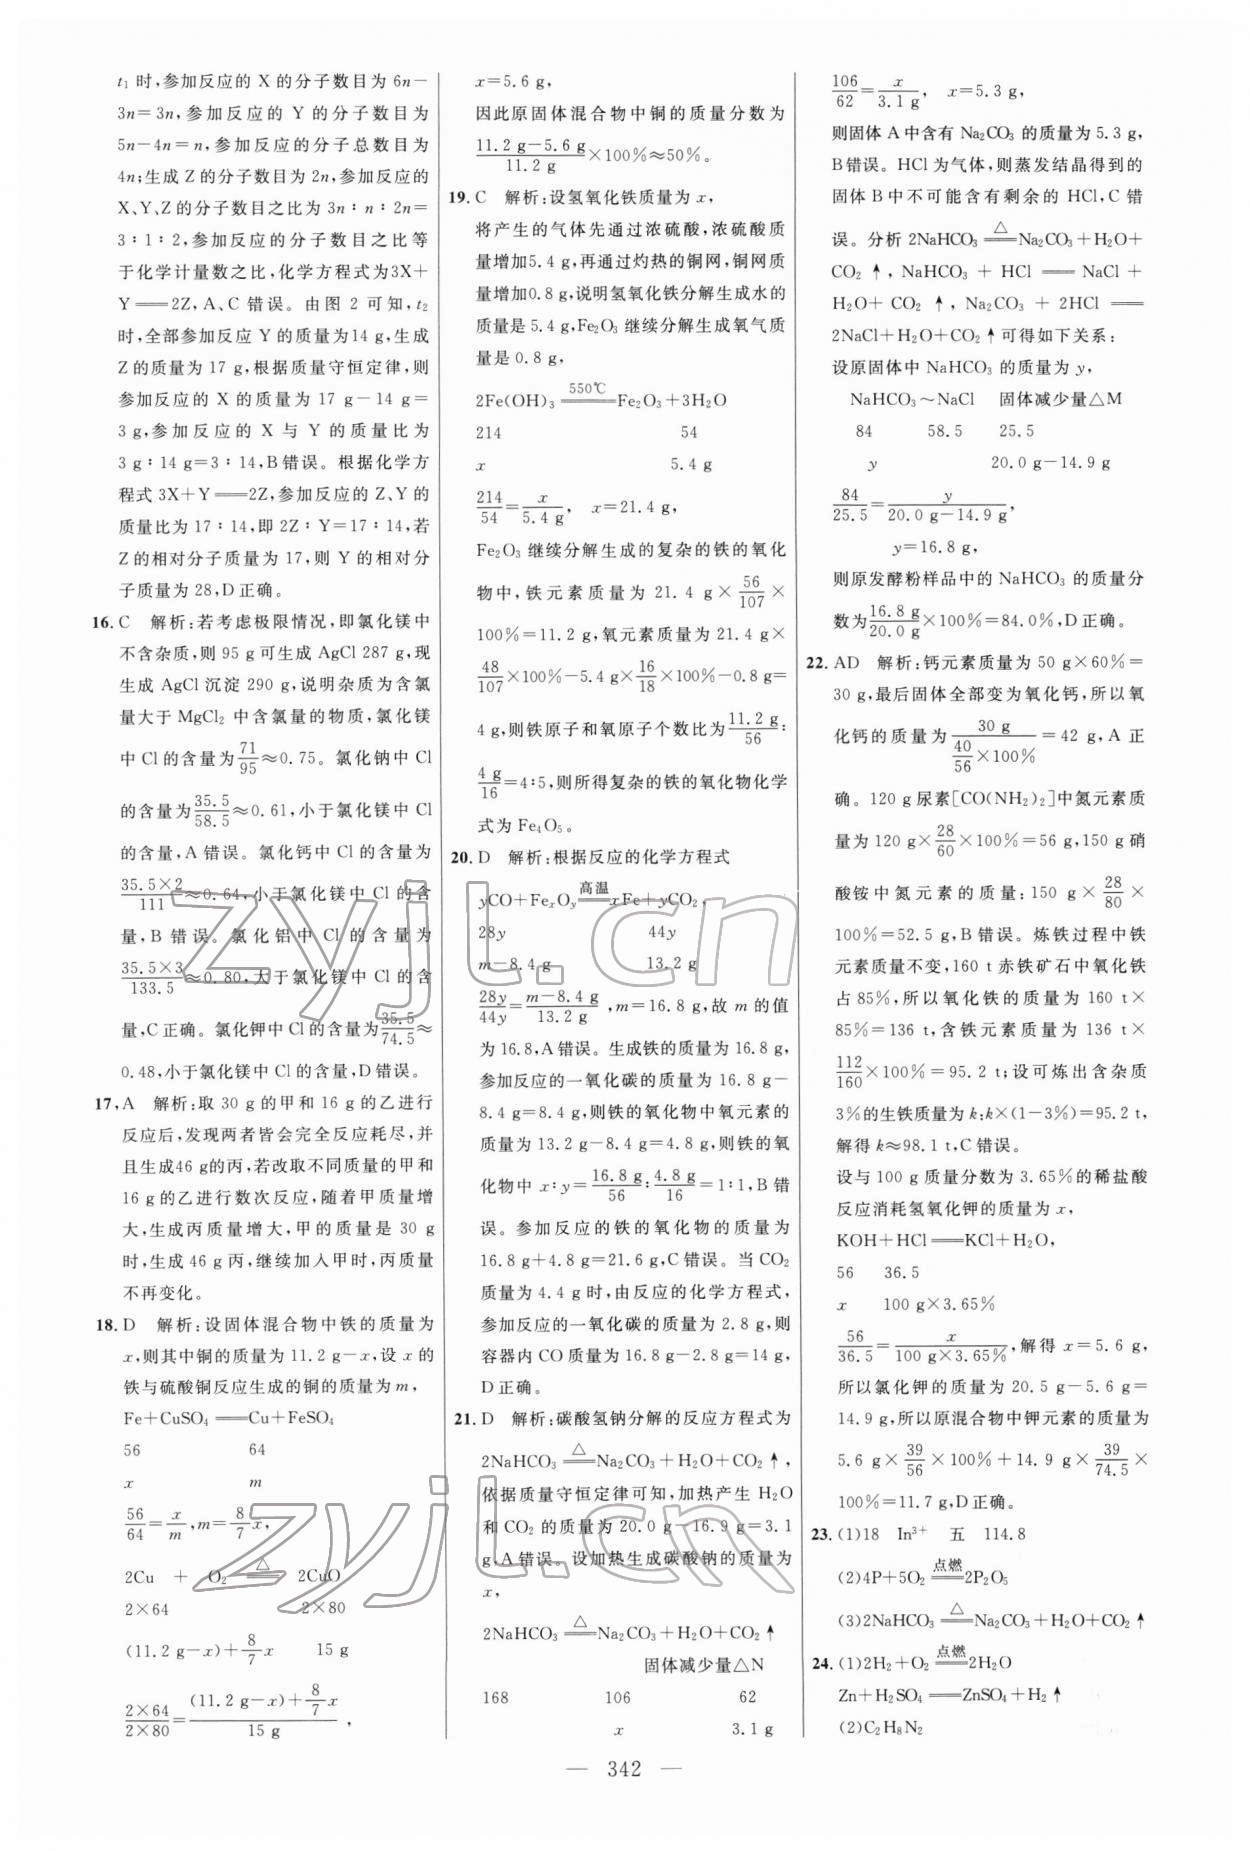 t₁ 时,参加反应的 X 的分子数目为 6n－
3n＝3n,参加反应的 Y 的分子数目为
5n－4n＝n,参加反应的分子总数目为
4n;生成 Z 的分子数目为 2n,参加反应的
X、Y、Z 的分子数目之比为 3n∶n∶2n＝
3∶1∶2,参加反应的分子数目之比等
于化学计量数之比,化学方程式为3X＋
Y══2Z,A、C 错误。由图 2 可知,t₂
时,全部参加反应 Y 的质量为14 g,生成
Z 的质量为 17 g,根据质量守恒定律,则
参加反应的 X 的质量为 17 g－14 g＝
3 g,参加反应的 X 与 Y 的质量比为
3 g∶14 g＝3∶14,B 错误。根据化学方
程式 3X＋Y══2Z,参加反应的 Z、Y 的
质量比为 17∶14,即 2Z∶Y＝17∶14,若
Z 的相对分子质量为 17,则 Y 的相对分
子质量为 28,D 正确。
16. C 解析:若考虑极限情况,即氯化镁中
不含杂质,则 95 g 可生成 AgCl 287 g,现
生成 AgCl 沉淀 290 g,说明杂质为含氯
量大于 MgCl₂ 中含氯量的物质,氯化镁
中 Cl 的含量为 71/95 ≈0.75。氯化钠中 Cl
的含量为 35.5/58.5 ≈0.61,小于氯化镁中 Cl
的含量,A 错误。氯化钙中 Cl 的含量为
35.5×2/111 ≈0.64,小于氯化镁中 Cl 的含
量,B 错误。氯化铝中 Cl 的含量为
35.5×3/133.5 ≈0.80,大于氯化镁中 Cl 的含
量,C 正确。氯化钾中 Cl 的含量为 35.5/74.5 ≈
0.48,小于氯化镁中 Cl 的含量,D 错误。
17. A 解析:取 30 g 的甲和 16 g 的乙进行
反应后,发现两者皆会完全反应耗尽,并
且生成46 g的丙,若改取不同质量的甲和
16 g 的乙进行数次反应,随着甲质量增
大,生成丙质量增大,甲的质量是 30 g
时,生成 46 g 丙,继续加入甲时,丙质量
不再变化。
18. D 解析:设固体混合物中铁的质量为
x,则其中铜的质量为 11.2 g－x,设 x 的
铁与硫酸铜反应生成的铜的质量为 m,
Fe＋CuSO₄══Cu＋FeSO₄
56 64
x m
56/64＝x/m,m＝8/7 x,
2Cu ＋ O₂ ══△ 2CuO
2×64 2×80
(11.2 g－x)＋8/7 x 15 g
2×64/2×80＝((11.2 g－x)＋8/7 x)/15 g,
x＝5.6 g,
因此原固体混合物中铜的质量分数为
(11.2 g－5.6 g)/11.2 g×100%≈50%。
19. C 解析:设氢氧化铁质量为 x,
将产生的气体先通过浓硫酸,浓硫酸质
量增加5.4 g,再通过灼热的铜网,铜网质
量增加0.8 g,说明氢氧化铁分解生成水的
质量是 5.4 g,Fe₂O₃ 继续分解生成氧气质
量是 0.8 g,
2Fe(OH)₃ ══550℃ Fe₂O₃＋3H₂O
214 54
x 5.4 g
214/54＝x/5.4 g, x＝21.4 g,
Fe₂O₃ 继续分解生成的复杂的铁的氧化
物中,铁元素质量为 21.4 g×56/107×
100%＝11.2 g,氧元素质量为 21.4 g×
48/107×100%－5.4 g×16/18×100%－0.8 g＝
4 g,则铁原子和氧原子个数比为 11.2 g/56∶
4 g/16＝4∶5,则所得复杂的铁的氧化物化学
式为 Fe₄O₅。
20. D 解析:根据反应的化学方程式
yCO＋FeₓOᵧ ══高温 xFe＋yCO₂,
28y 44y
m－8.4 g 13.2 g
28y/44y＝(m－8.4 g)/13.2 g,m＝16.8 g,故 m 的值
为 16.8,A 错误。生成铁的质量为 16.8 g,
参加反应的一氧化碳的质量为 16.8 g－
8.4 g＝8.4 g,则铁的氧化物中氧元素的
质量为 13.2 g－8.4 g＝4.8 g,则铁的氧
化物中 x∶y＝16.8 g/56∶4.8 g/16＝1∶1,B 错
误。参加反应的铁的氧化物的质量为
16.8 g＋4.8 g＝21.6 g,C 错误。当 CO₂
质量为 4.4 g 时,由反应的化学方程式,
参加反应的一氧化碳的质量为 2.8 g,则
容器内 CO 质量为 16.8 g－2.8 g＝14 g,
D 正确。
21. D 解析:碳酸氢钠分解的反应方程式为
2NaHCO₃ ══△ Na₂CO₃＋H₂O＋CO₂↑,
依据质量守恒定律可知,加热产生 H₂O
和 CO₂ 的质量为 20.0 g－16.9 g＝3.1
g,A 错误。设加热生成碳酸钠的质量为
x,
2NaHCO₃ ══△ Na₂CO₃＋H₂O＋CO₂↑
固体减少量△N
168 106 62
x 3.1 g
106/62＝x/3.1 g, x＝5.3 g,
则固体 A 中含有 Na₂CO₃ 的质量为 5.3 g,
B 错误。HCl 为气体,则蒸发结晶得到的
固体 B 中不可能含有剩余的 HCl,C 错
误。分析 2NaHCO₃ ══△ Na₂CO₃＋H₂O＋
CO₂↑,NaHCO₃ ＋ HCl══NaCl ＋
H₂O＋CO₂↑,Na₂CO₃ ＋ 2HCl══
2NaCl＋H₂O＋CO₂↑可得如下关系:
设原固体中 NaHCO₃ 的质量为 y,
NaHCO₃～NaCl 固体减少量△M
84 58.5 25.5
y 20.0 g－14.9 g
84/25.5＝y/(20.0 g－14.9 g),
y＝16.8 g,
则原发酵粉样品中的 NaHCO₃ 的质量分
数为 16.8 g/20.0 g×100%＝84.0%,D 正确。
22. AD 解析:钙元素质量为 50 g×60%＝
30 g,最后固体全部变为氧化钙,所以氧
化钙的质量为 30 g/(40/56×100%)＝42 g,A 正
确。120 g 尿素[CO(NH₂)₂]中氮元素质
量为 120 g×28/60×100%＝56 g,150 g 硝
酸铵中氮元素的质量:150 g×28/80×
100%＝52.5 g,B 错误。炼铁过程中铁
元素质量不变,160 t 赤铁矿石中氧化铁
占 85%,所以氧化铁的质量为 160 t×
85%＝136 t,含铁元素质量为 136 t×
112/160×100%＝95.2 t;设可炼出含杂质
3%的生铁质量为 k:k×(1－3%)＝95.2 t,
解得 k≈98.1 t,C 错误。
设与 100 g 质量分数为 3.65%的稀盐酸
反应消耗氢氧化钾的质量为 x,
KOH＋HCl══KCl＋H₂O,
56 36.5
x 100 g×3.65%
56/36.5＝x/(100 g×3.65%),解得 x＝5.6 g,
所以氯化钾的质量为 20.5 g－5.6 g＝
14.9 g,所以原混合物中钾元素的质量为
5.6 g×39/56×100%＋14.9 g×39/74.5×
100%＝11.7 g,D 正确。
23. (1)18 In³⁺ 五 114.8
(2)4P＋5O₂ ══点燃 2P₂O₅
(3)2NaHCO₃ ══△ Na₂CO₃＋H₂O＋CO₂↑
24. (1)2H₂＋O₂ ══点燃 2H₂O
Zn＋H₂SO₄══ZnSO₄＋H₂↑
(2)C₂H₈N₂
— 342 —
zyjl.cn
zyjl.cn